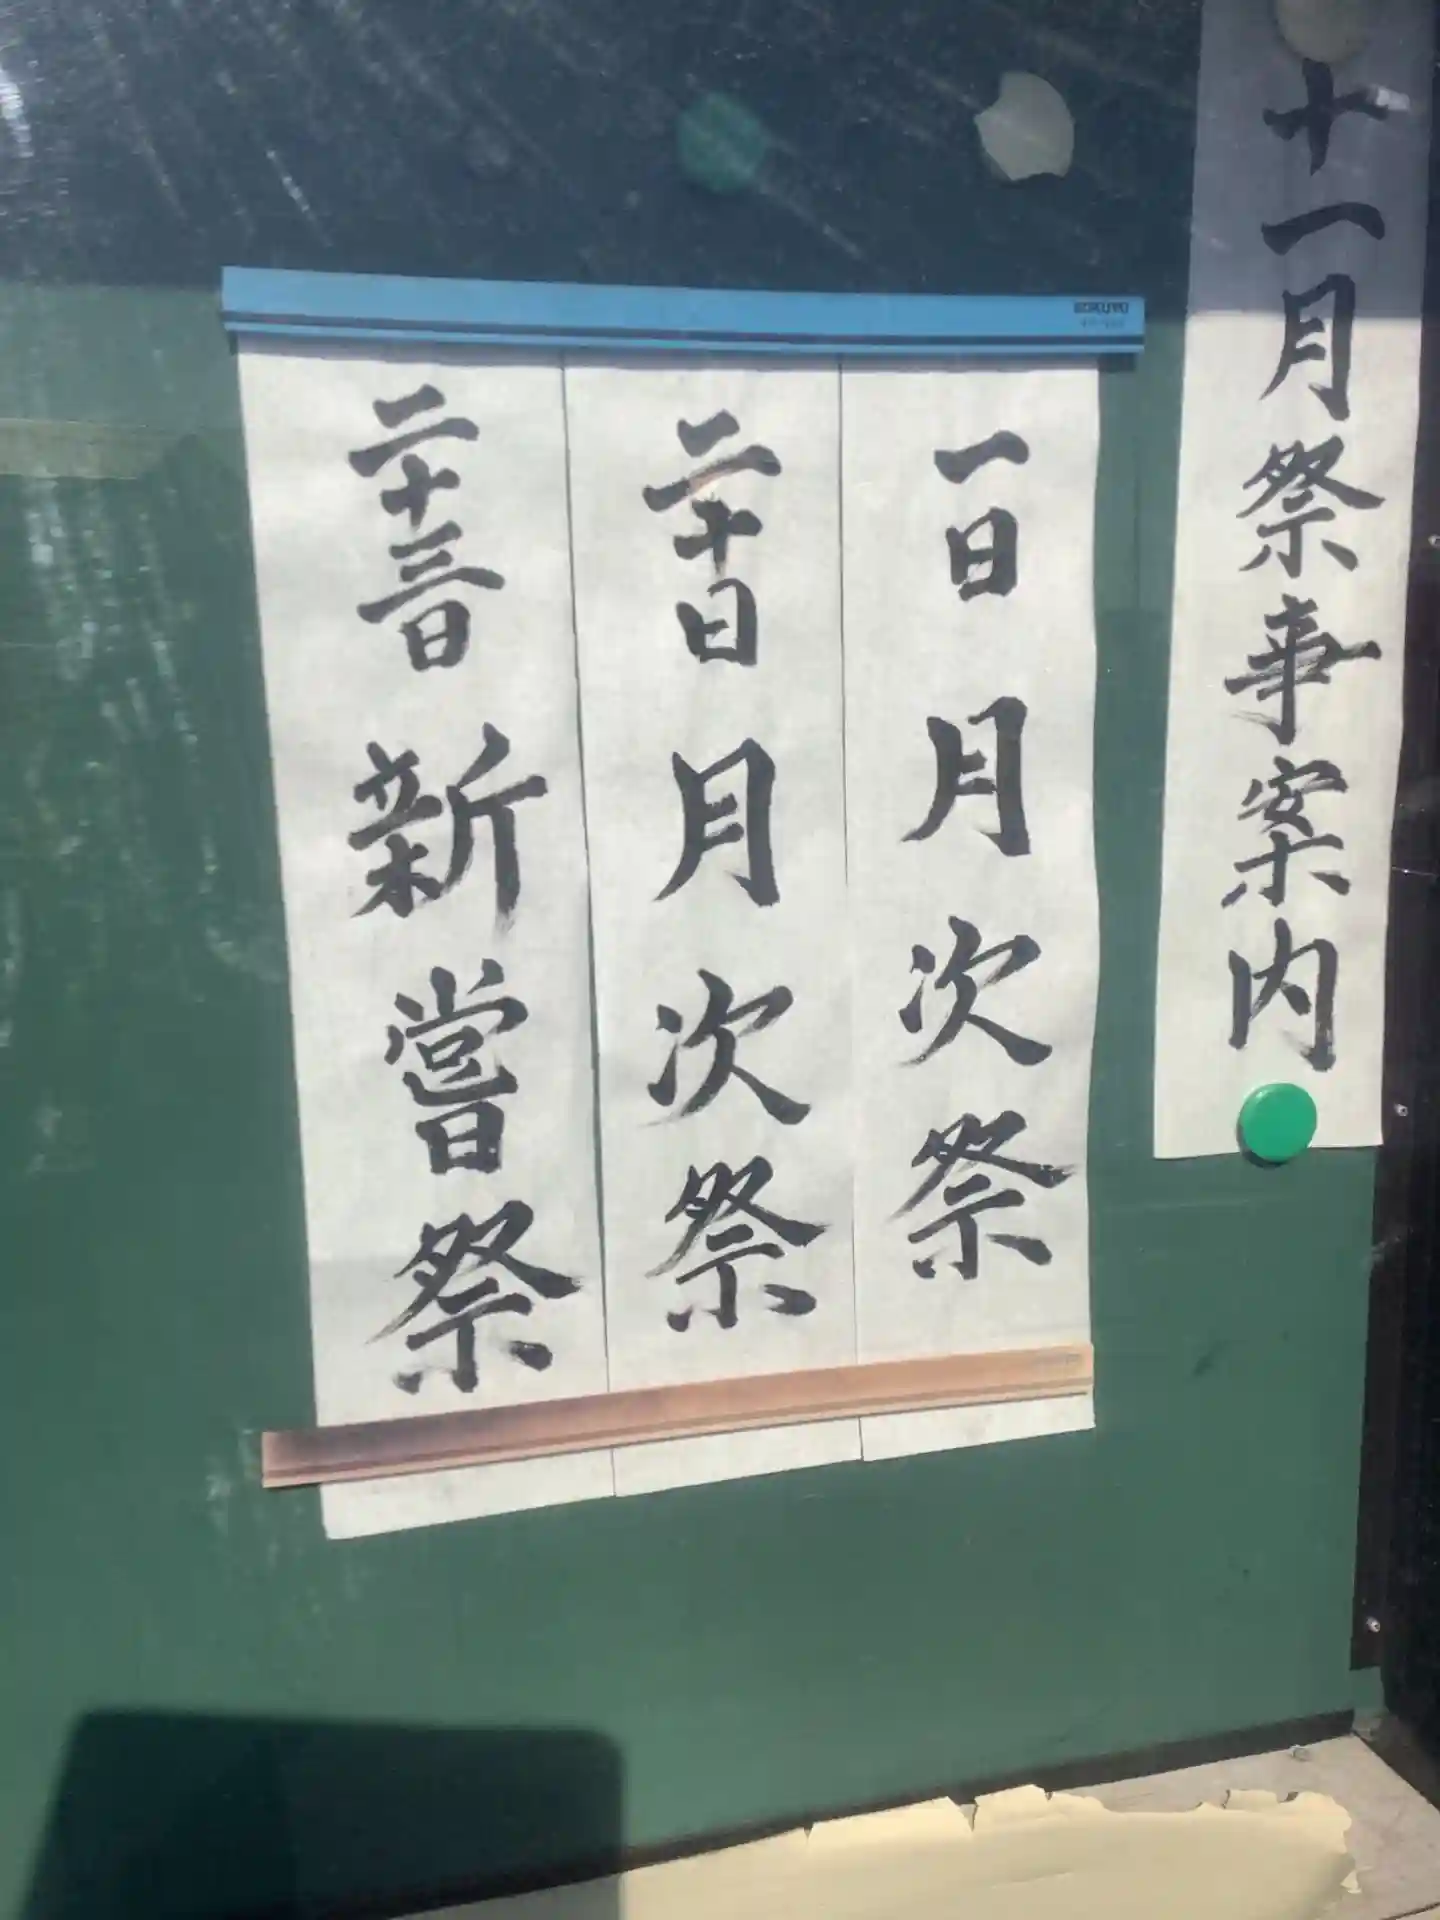 十一月祭事案内
一日 月次祭
二十日 月次祭
二十三日 新嘗祭
KOKUYO